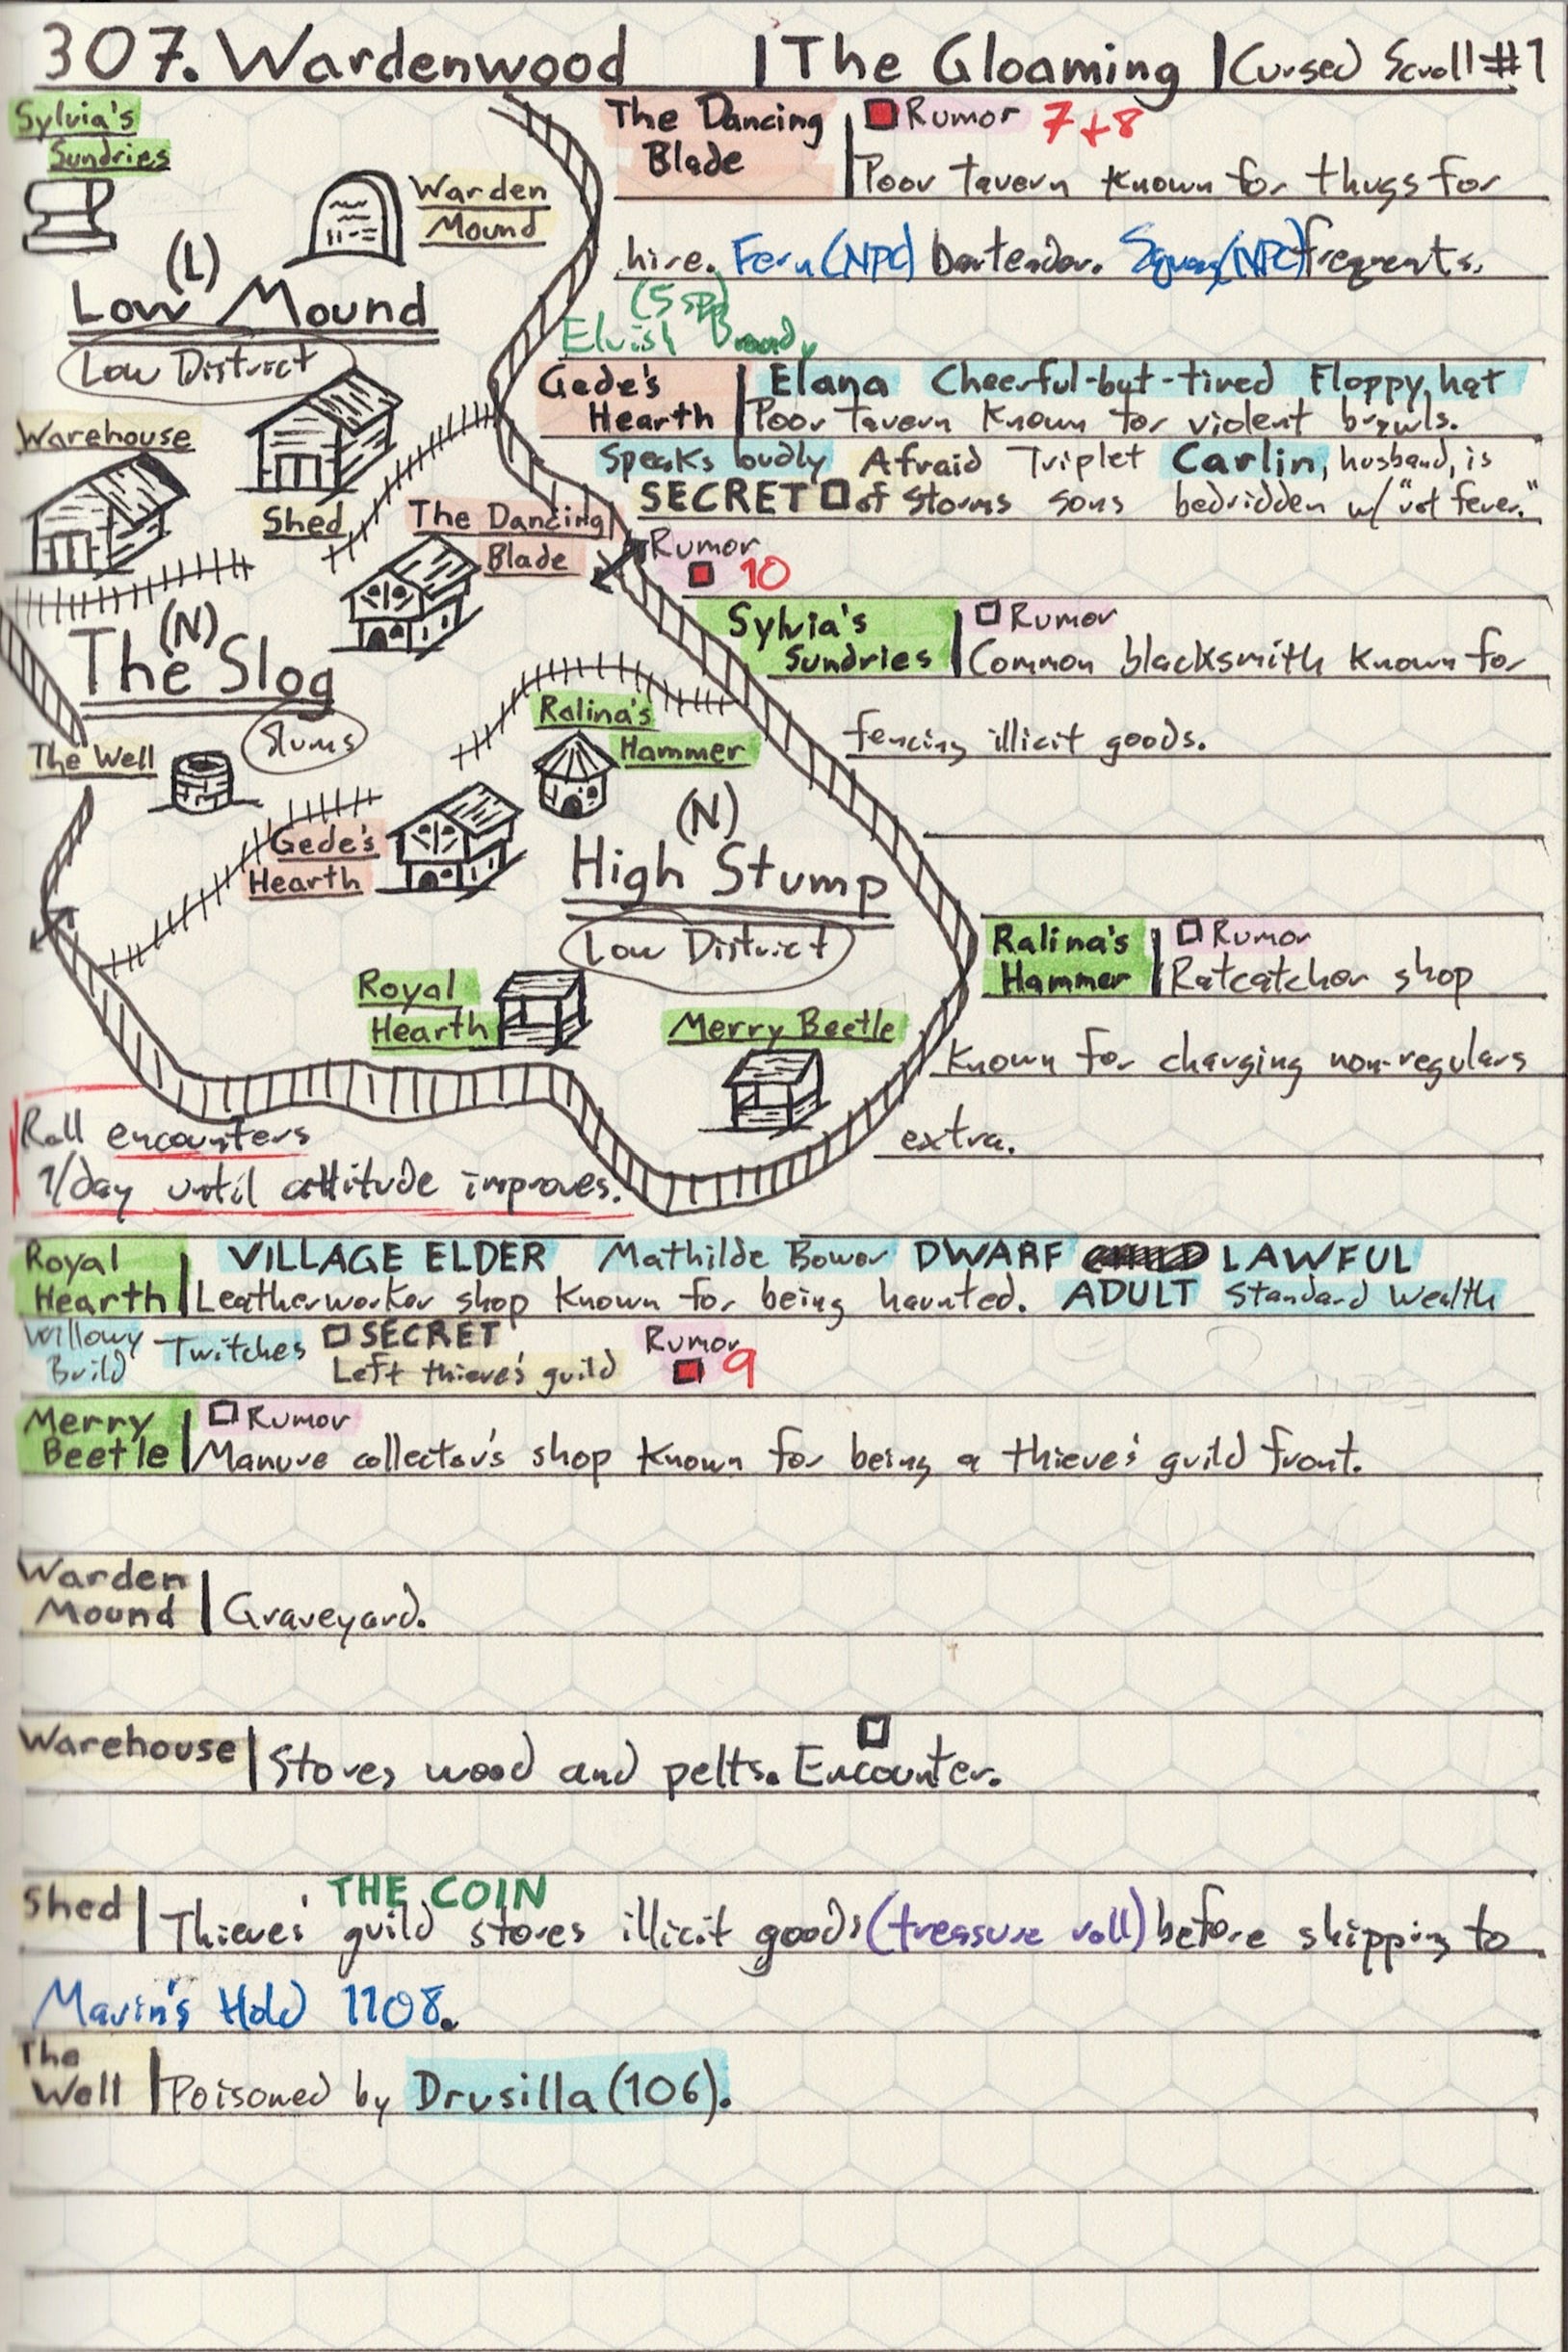 307. Wardenwood | The Gloaming | Cursed Scroll #1
Sylvia's
Sundries
Warden
Mound
(L)
Low Mound
Low District
Warehouse
Shed
The Dancing
Blade
(N)
The Slog
Slums
The Well
Ralina's
Hammer
Gede's
Hearth
(N)
High Stump
Low District
Royal
Hearth
Merry Beetle
Roll encounters
1/day until attitude improves.
The Dancing
Blade
Rumor 7+8
Poor tavern known for thugs for
hire. Fern (NPC) bartender. (NPC) frequents.
(5 sp)
Elvish Brandy
Gede's
Hearth
Elana Cheerful-but-tired Floppy hat
Poor tavern known for violent brawls.
Speaks loudly Afraid Triplet Carlin, husband, is
SECRET of storms sons bedridden w/ "rot fever."
Rumor
10
Sylvia's
Sundries
Rumor
Common blacksmith known for
fencing illicit goods.
Ralina's
Hammer
Rumor
Ratcatcher shop
known for charging non-regulars
extra.
Royal
Hearth
VILLAGE ELDER Mathilde Bower DWARF LAWFUL
Leatherworker shop known for being haunted. ADULT Standard Wealth
Willowy
Build
Twitches
SECRET
Left thieve's guild
Rumor
9
Merry
Beetle
Rumor
Manure collector's shop known for being a thieve's guild front.
Warden
Mound | Graveyard.
Warehouse | Stores wood and pelts. Encounter.
THE COIN
Shed | Thieves' guild stores illicit goods (treasure roll) before shipping to
Mavin's Hold 1108.
The
Well | Poisoned by Drusilla (106).